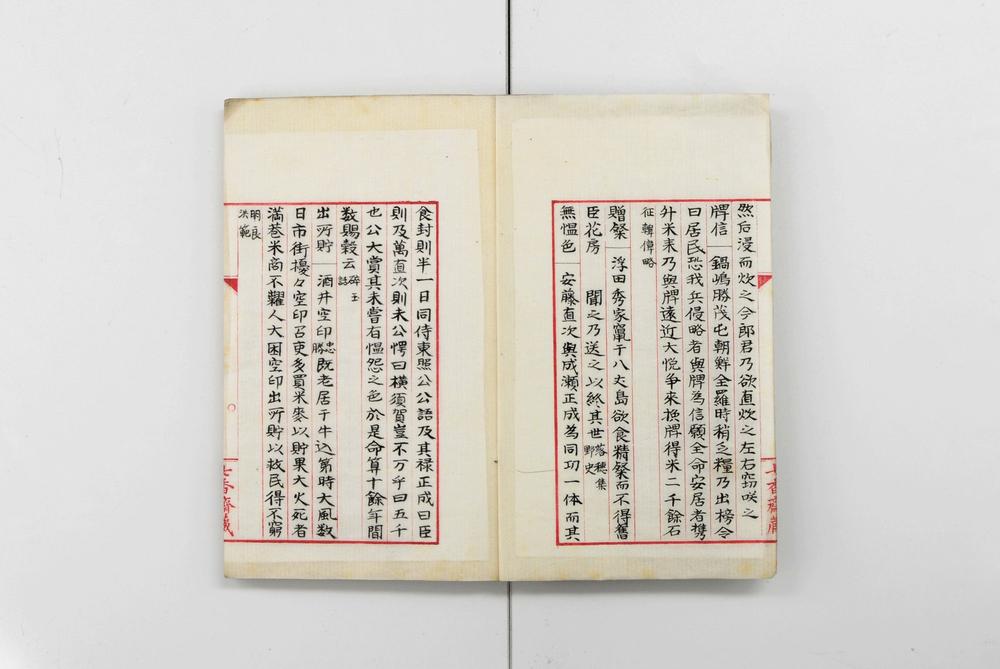 然后浸而炊之今郎君乃欲直炊之左右窃咲之
牌信 鍋嶋勝茂屯朝鮮全羅時稍乏糧乃出榜令
曰居民恐我兵侵略者與牌為信願全命安居者携
外米来乃與牌遠近大悦争來換牌得米二千餘石
征韓偉略
贈粲 浮田秀家竄于八丈島欲食精粲而不得舊
臣花房 聞之乃送之以終其世 落穂集 野史
無慍色 安藤直次與成瀬正成為同功一体而其
食封則半一日同侍東照公公語及其禄正成曰臣
則及萬直次則未公愕曰横須賀豈不万乎曰五千
也公大賞其未嘗有慍怨之色於是命算十餘年間
数賜穀云 碎玉話
出所貯 酒井空印 忠勝 既老居于牛込第時大風数
日市街擾々空印召吏多買米麥以貯果大火死者
満巷米商不糶人大困空印出所貯以救民得不窮
明良洪範
七香齋藏
七香齋藏